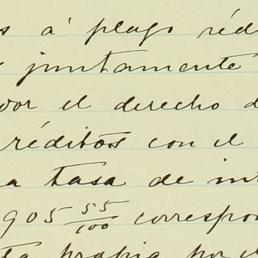 s á plazo réd
juntamente
por el derecho d
réditos con el
a tasa de in
905 55/100 correspon
ta propia por el